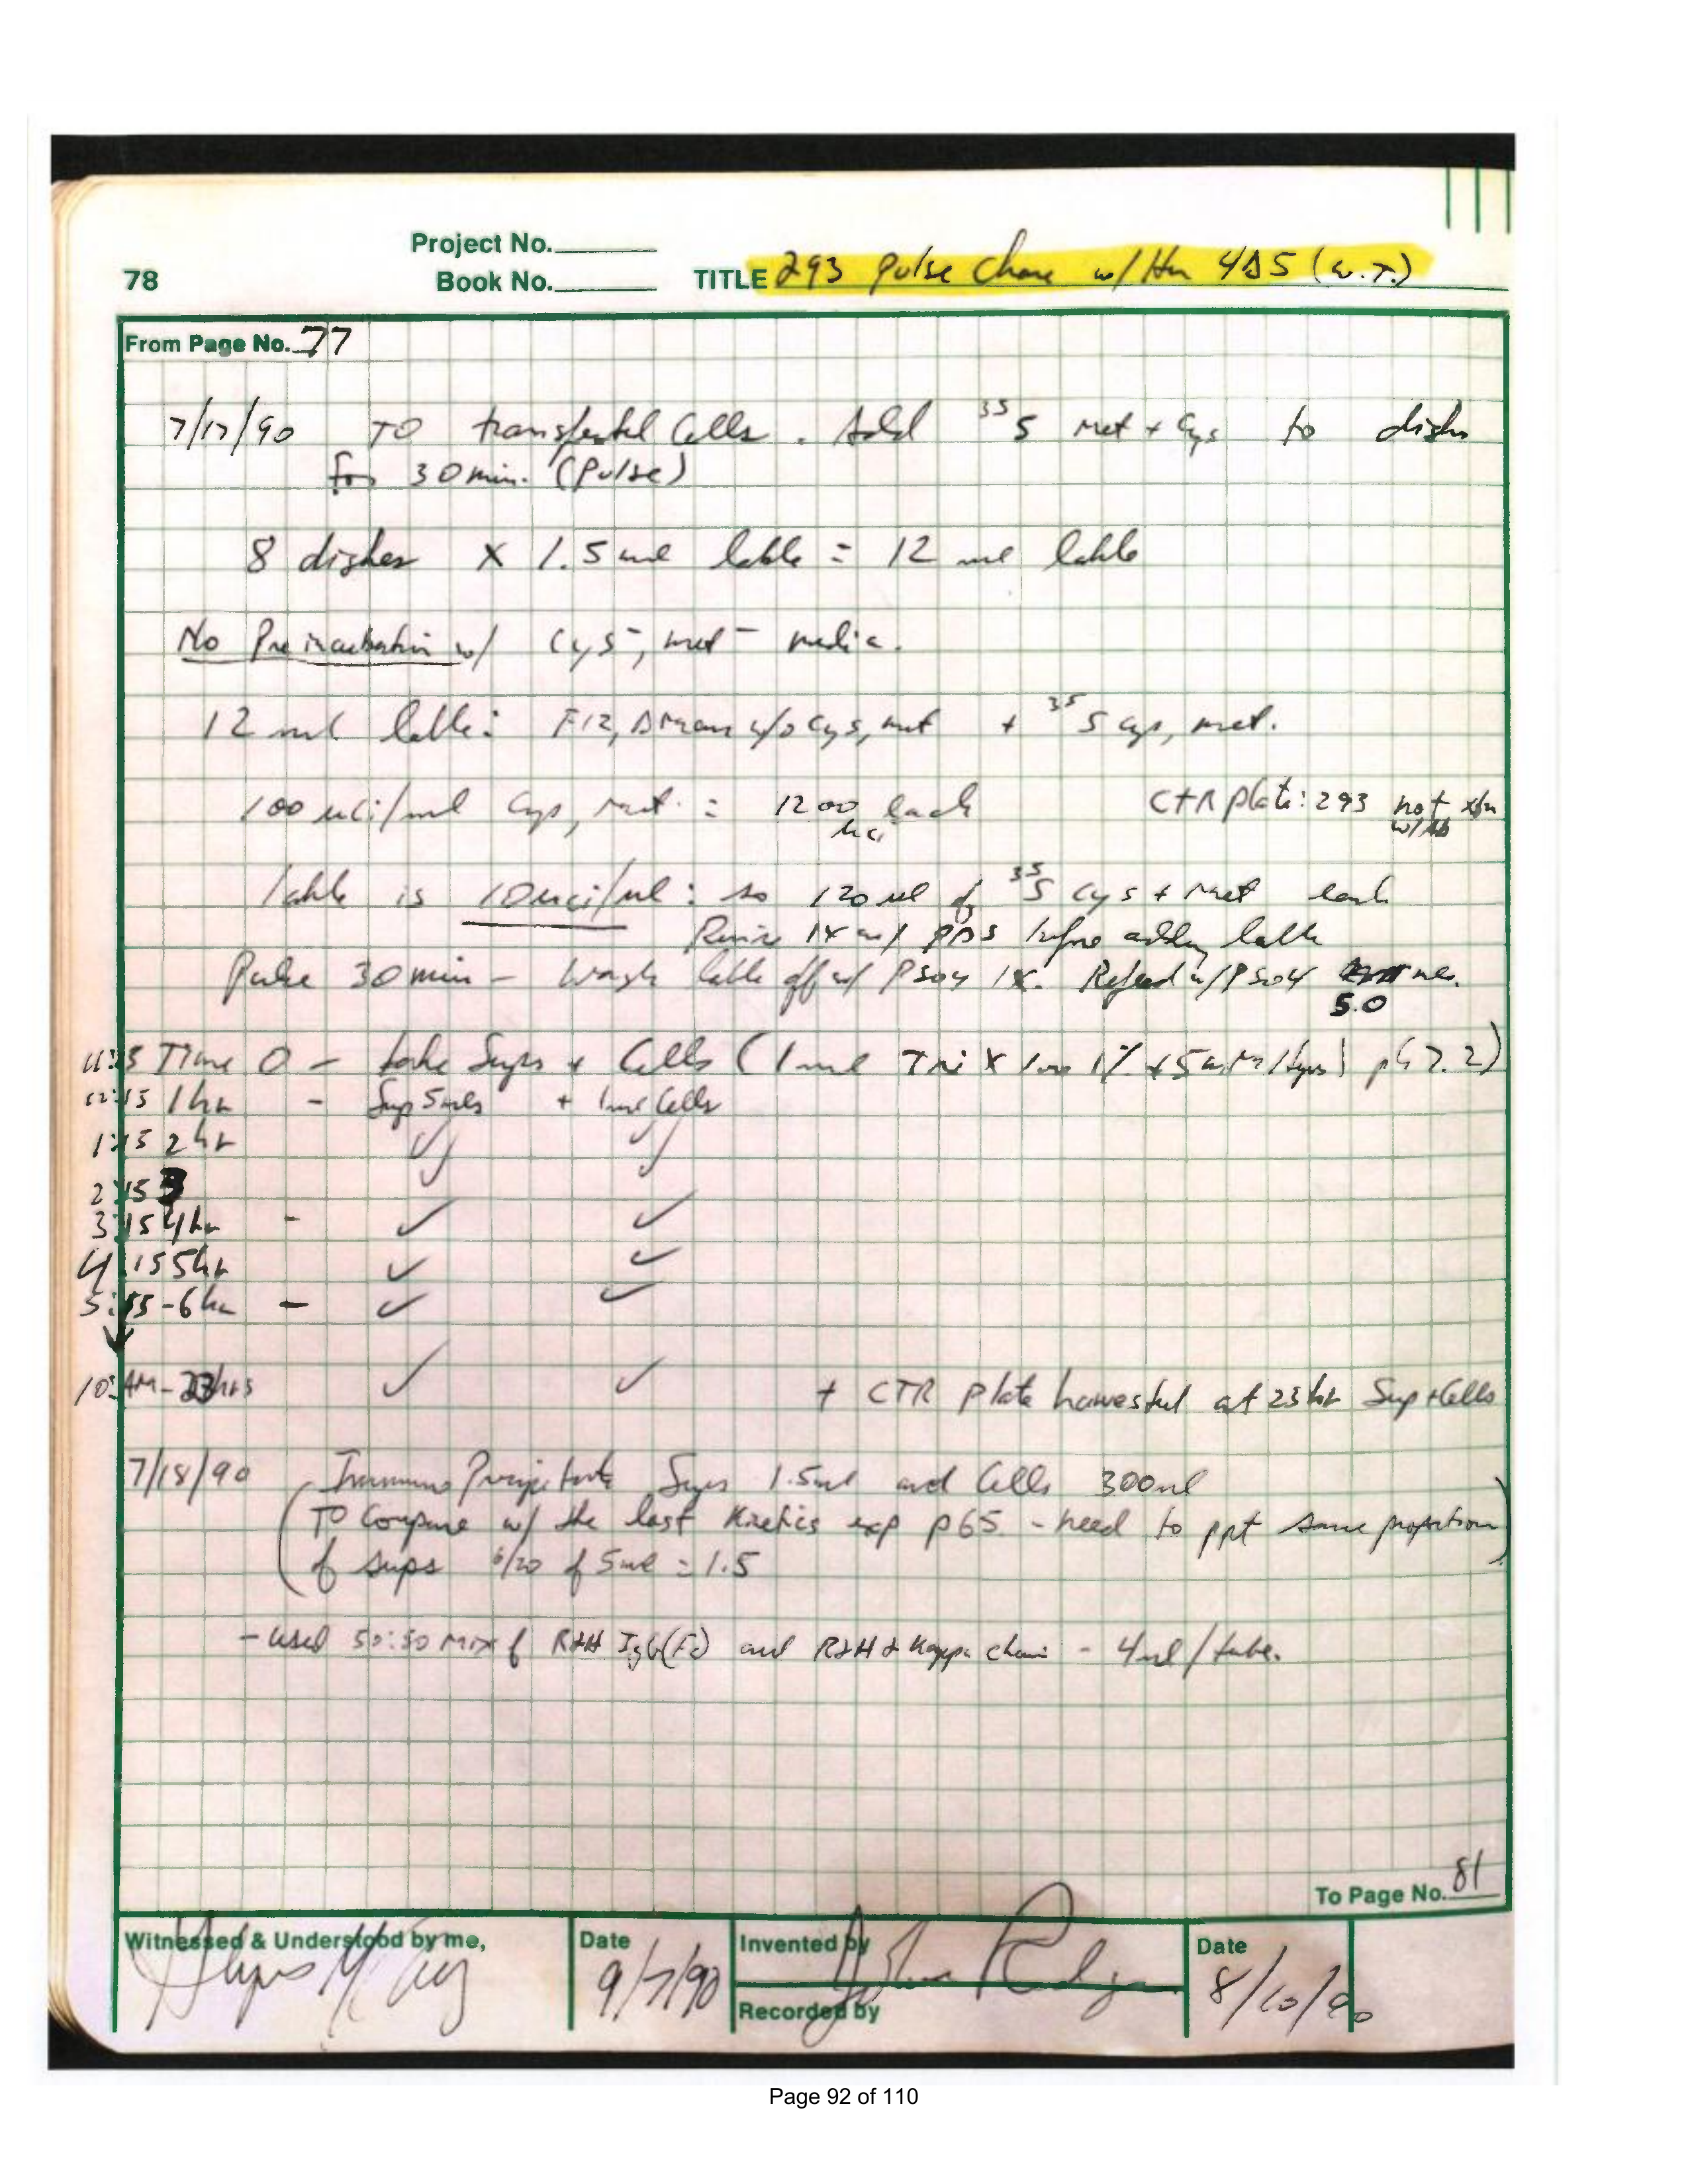 Project No.
78 Book No. TITLE 293 Pulse Chase w/ Hu 4D5 (W.T.)
From Page No. 77
7/17/90 TO transfected Cells. Add 35S Met + Cys to dishes
for 30 min. (Pulse)
8 dishes X 1.5 ml lable = 12 ml lable
No Preincubation w/ Cys-, met- media.
12 ml lable: F12, DMEM w/o Cys, met + 35S cys, met.
100 uCi/ml Cys, Met. = 1200 each
uCi
CTR plate: 293 not xfn
w/Ab
lable is 10uci/ul: so 120 ul of 35S Cys + Met each
Rinse 1X w/ PBS before adding lable
Pulse 30 min - Wash lable off w/ PS04 1X. Refeed w/ PS04 mls.
5.0
11:15 Time 0 - take Sups + Cells (1 ml Tri X 100 1% pH 7.2)
12:15 1 hr - Sup 5mls + 1ml Cells
1:15 2 hr ✓ ✓
2:15 3 ✓ ✓
3:15 4 hr - ✓ ✓
4:15 5 hr ✓ ✓
5:15 - 6 hr - ✓ ✓
10:AM - 23hrs ✓ ✓ + CTR Plate harvested at 23 hr Sup + Cells
7/18/90 Immuno Precipitate Sups 1.5ml and Cells 300ul
(TO Compare w/ the last Kinetics exp p65 - need to ppt same proportion
of sups 6/20 of 5ml = 1.5)
- used 50:50 Mix of RαH IgG(Fc) and RαH α Kappa chain - 4ul/tube.
To Page No. 81
Witnessed & Understood by me,
Date
9/7/90
Invented by
Recorded by
Date
8/10/90
Page 92 of 110